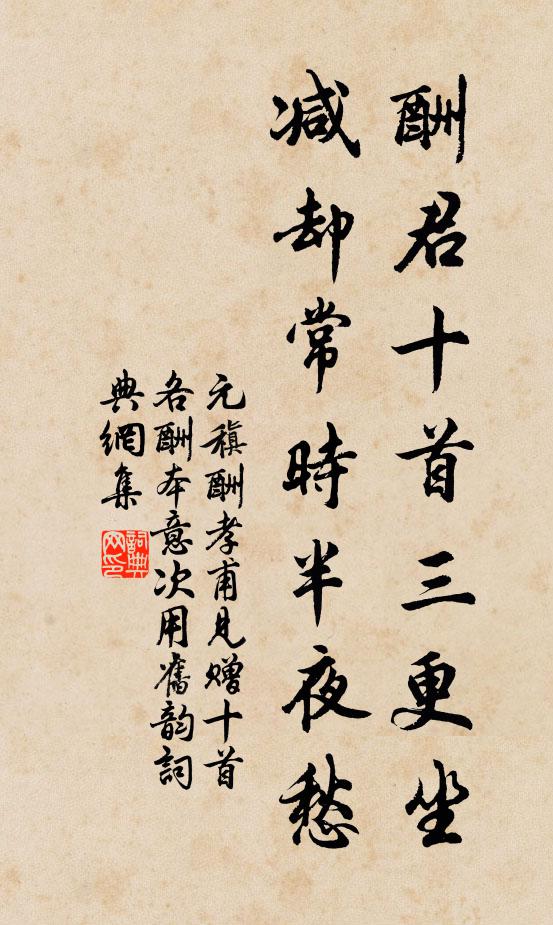 酬君十首三更坐
减却常時半夜愁
元稹酬孝甫見贈十首
各酬本意次用舊韵詞
典網集
詞典
网印